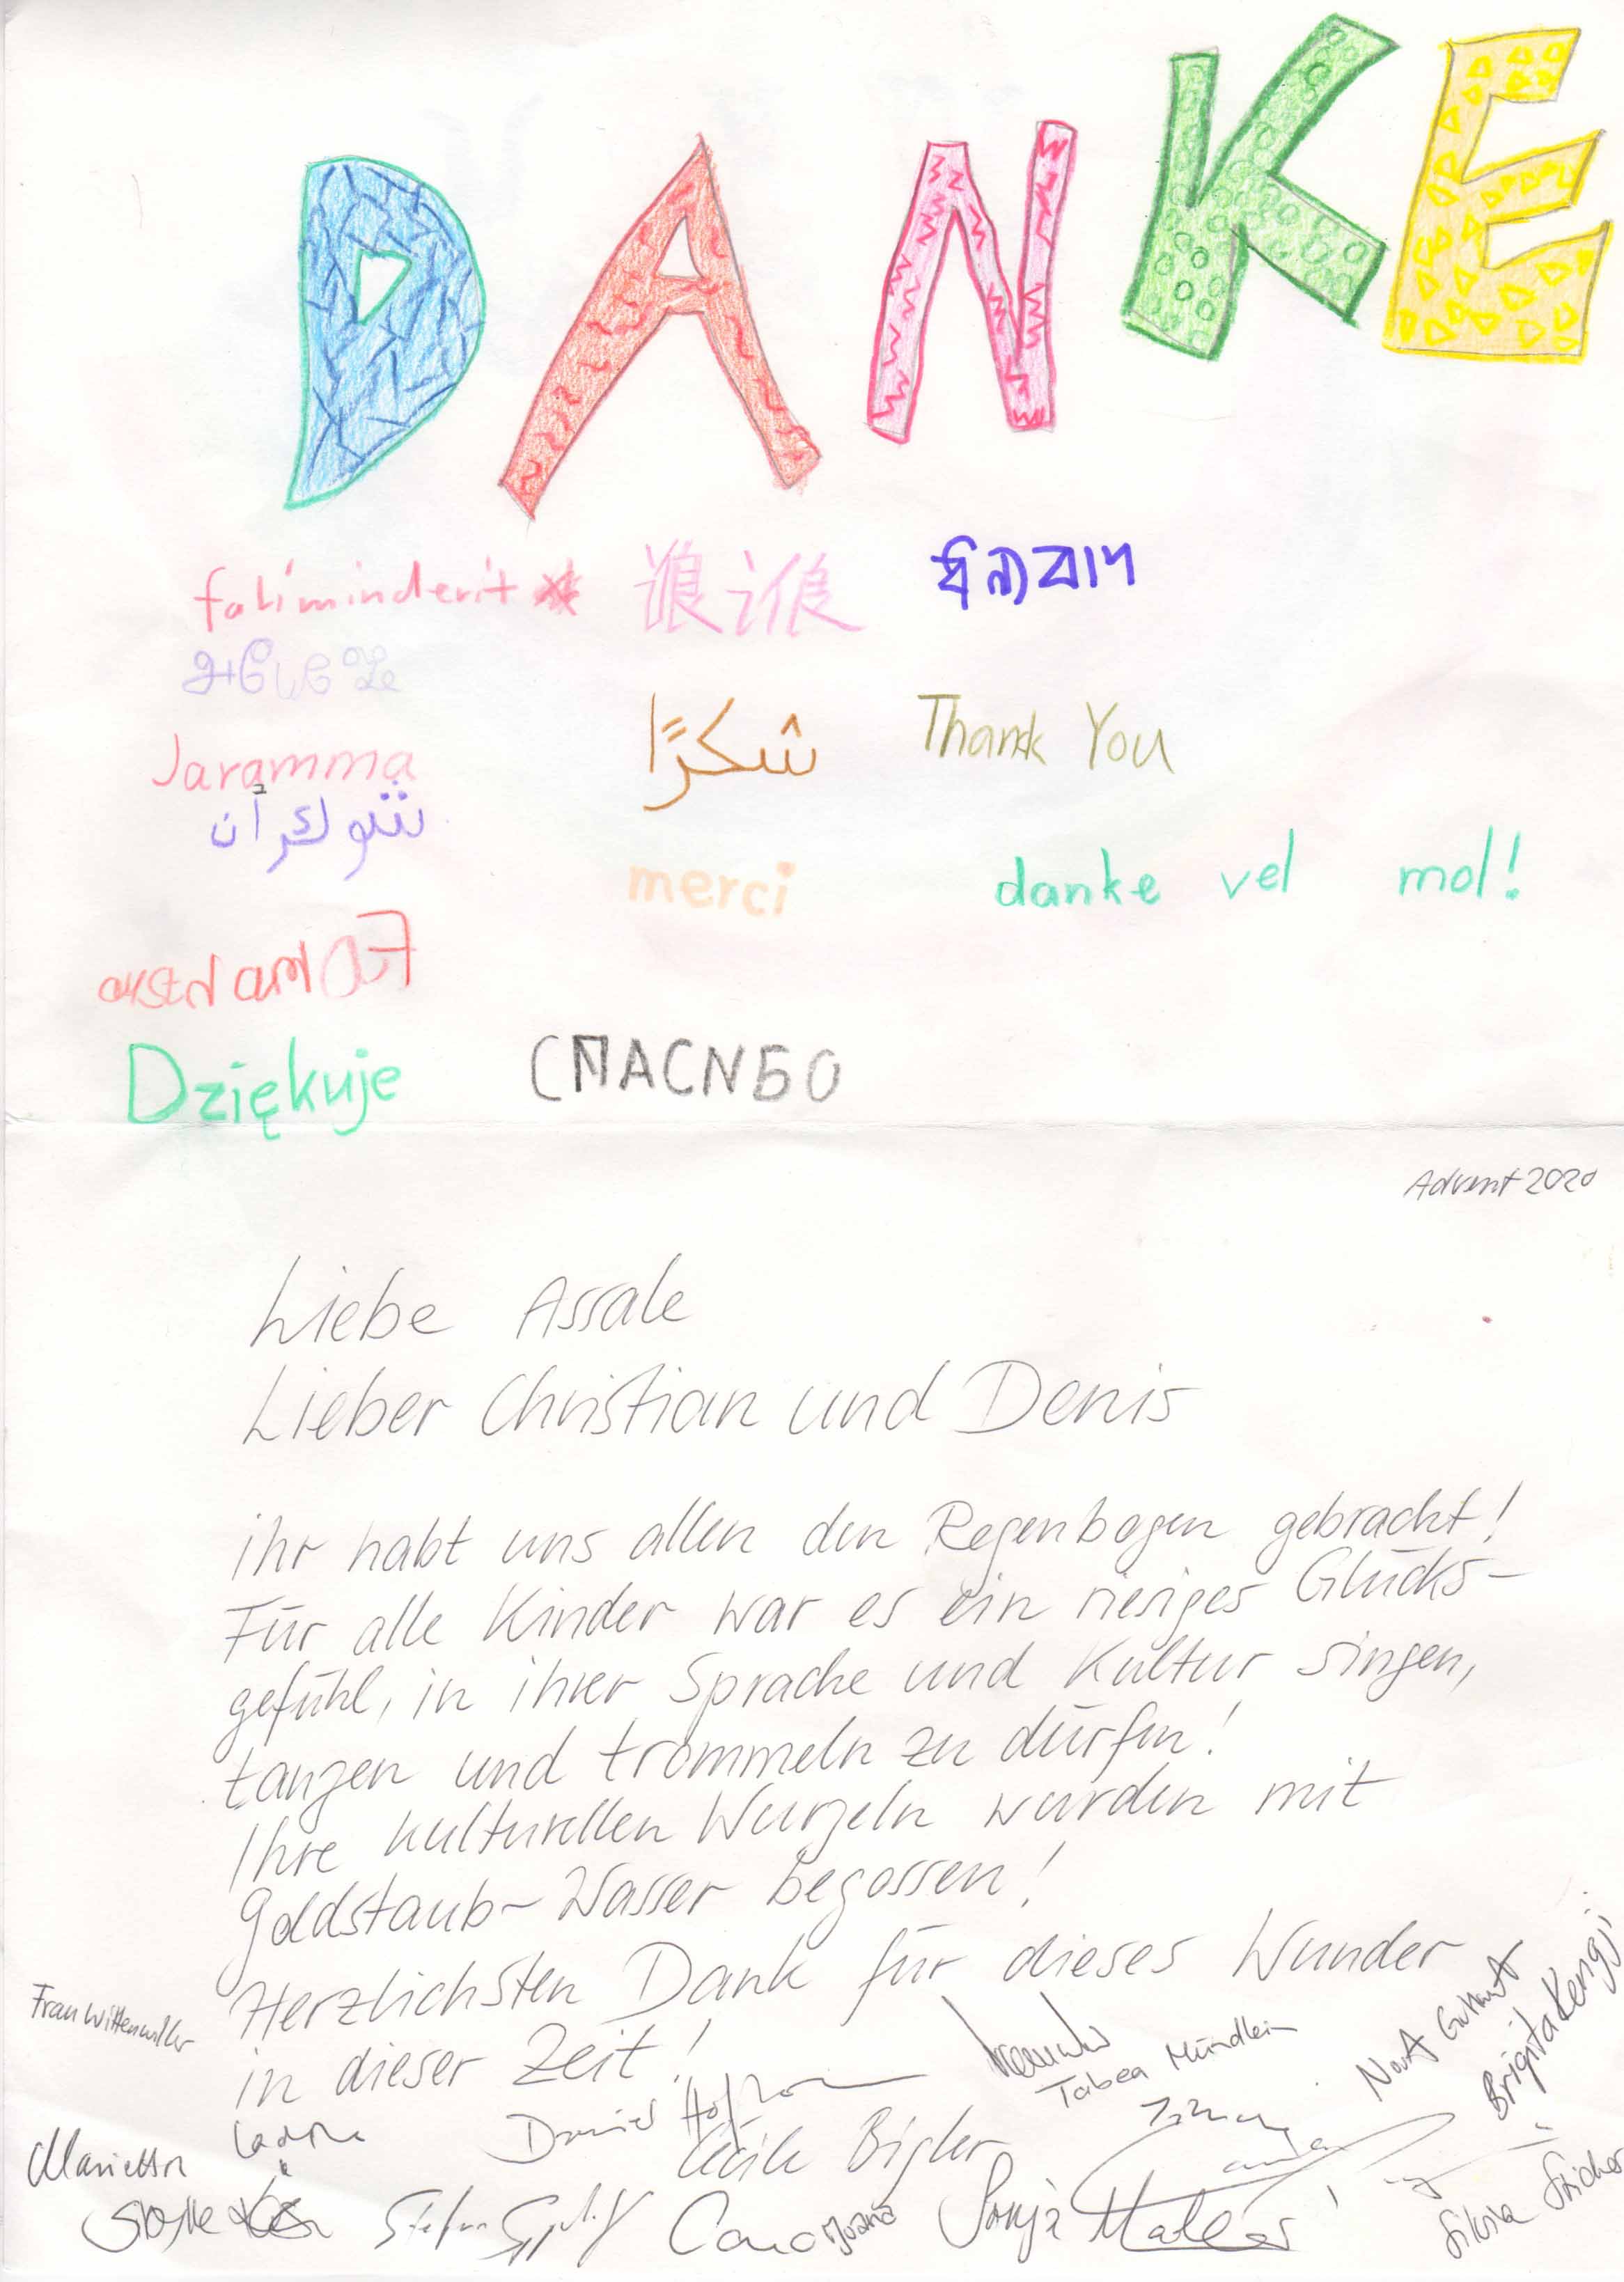 DANKE
faliminderit
Jaramma
شكرًا
Thank You
شوكرأن
merci
danke vel mol!
Dziękuje
CПACNБO
Advent 2020
Liebe Assale
Lieber Christian und Denis
ihr habt uns allen den Regenbogen gebracht!
Für alle Kinder war es ein riesiges Glücks-
gefühl, in ihrer Sprache und Kultur singen,
tanzen und trommeln zu dürfen!
Ihre kulturellen Wurzeln wurden mit
Goldstaub-Wasser begossen!
Herzlichsten Dank für dieses Wunder
in dieser Zeit!
Frau Wittenwiller
Tabea Mündlein
Brigita Kengji
Daniel
Cécile Bigler
Marietta
Stefan
Sonja
Silvia